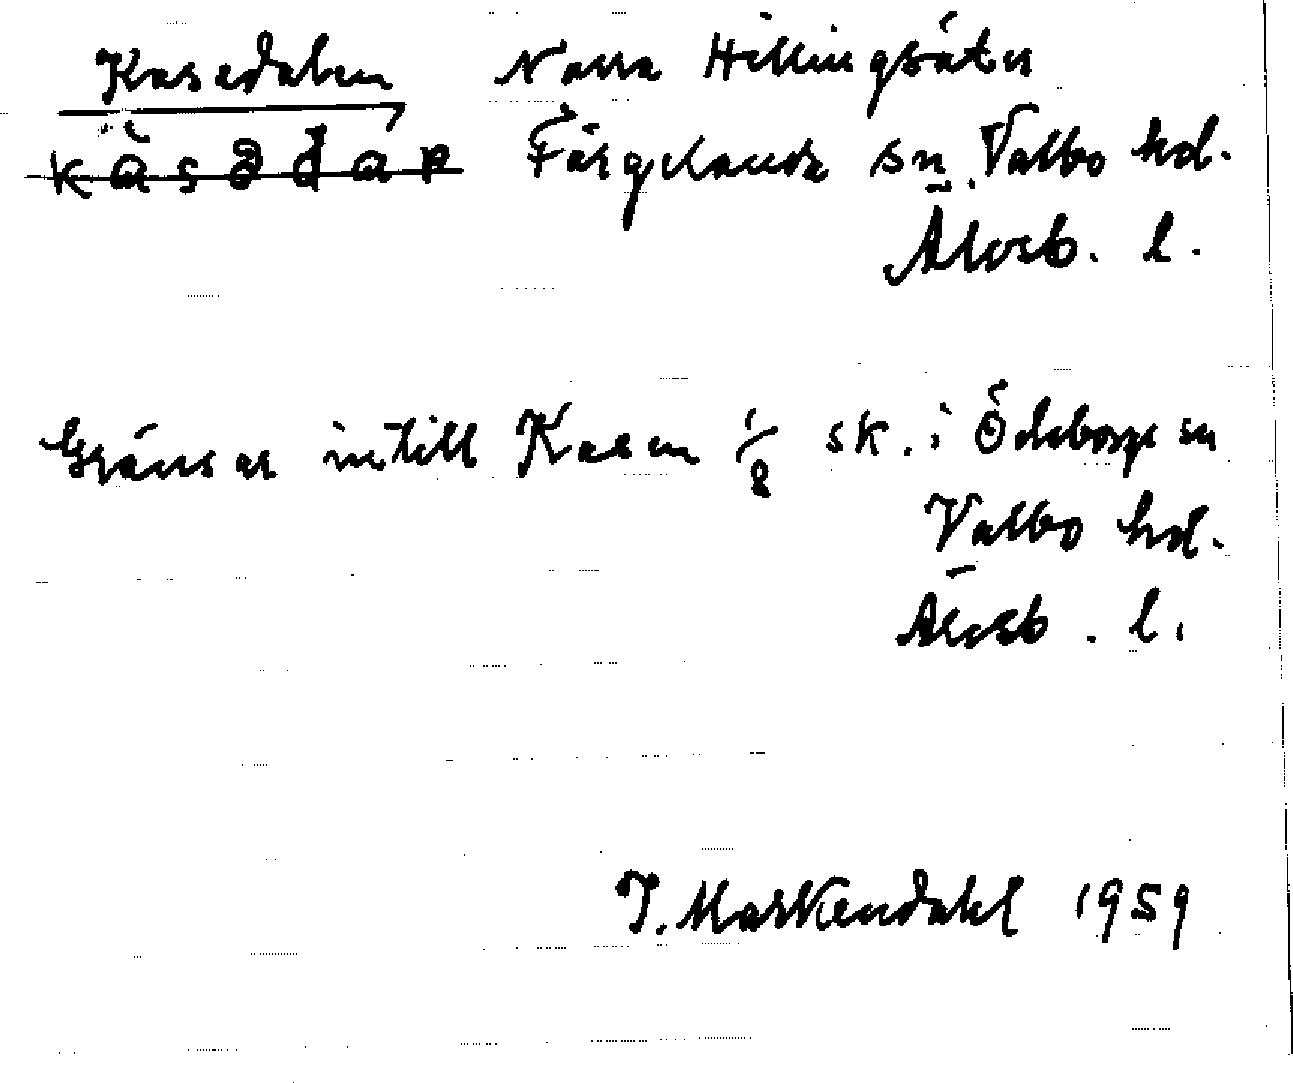 Kasedalen Norra Hillingsäter
kàsədáɽ Färgelanda sn. Valbo hd.
Älvsb. l.
Gränsar intill Kasen 1/8 sk. i Ödeborgs sn
Valbo hd.
Älvsb. l.
J. Markendahl 1959